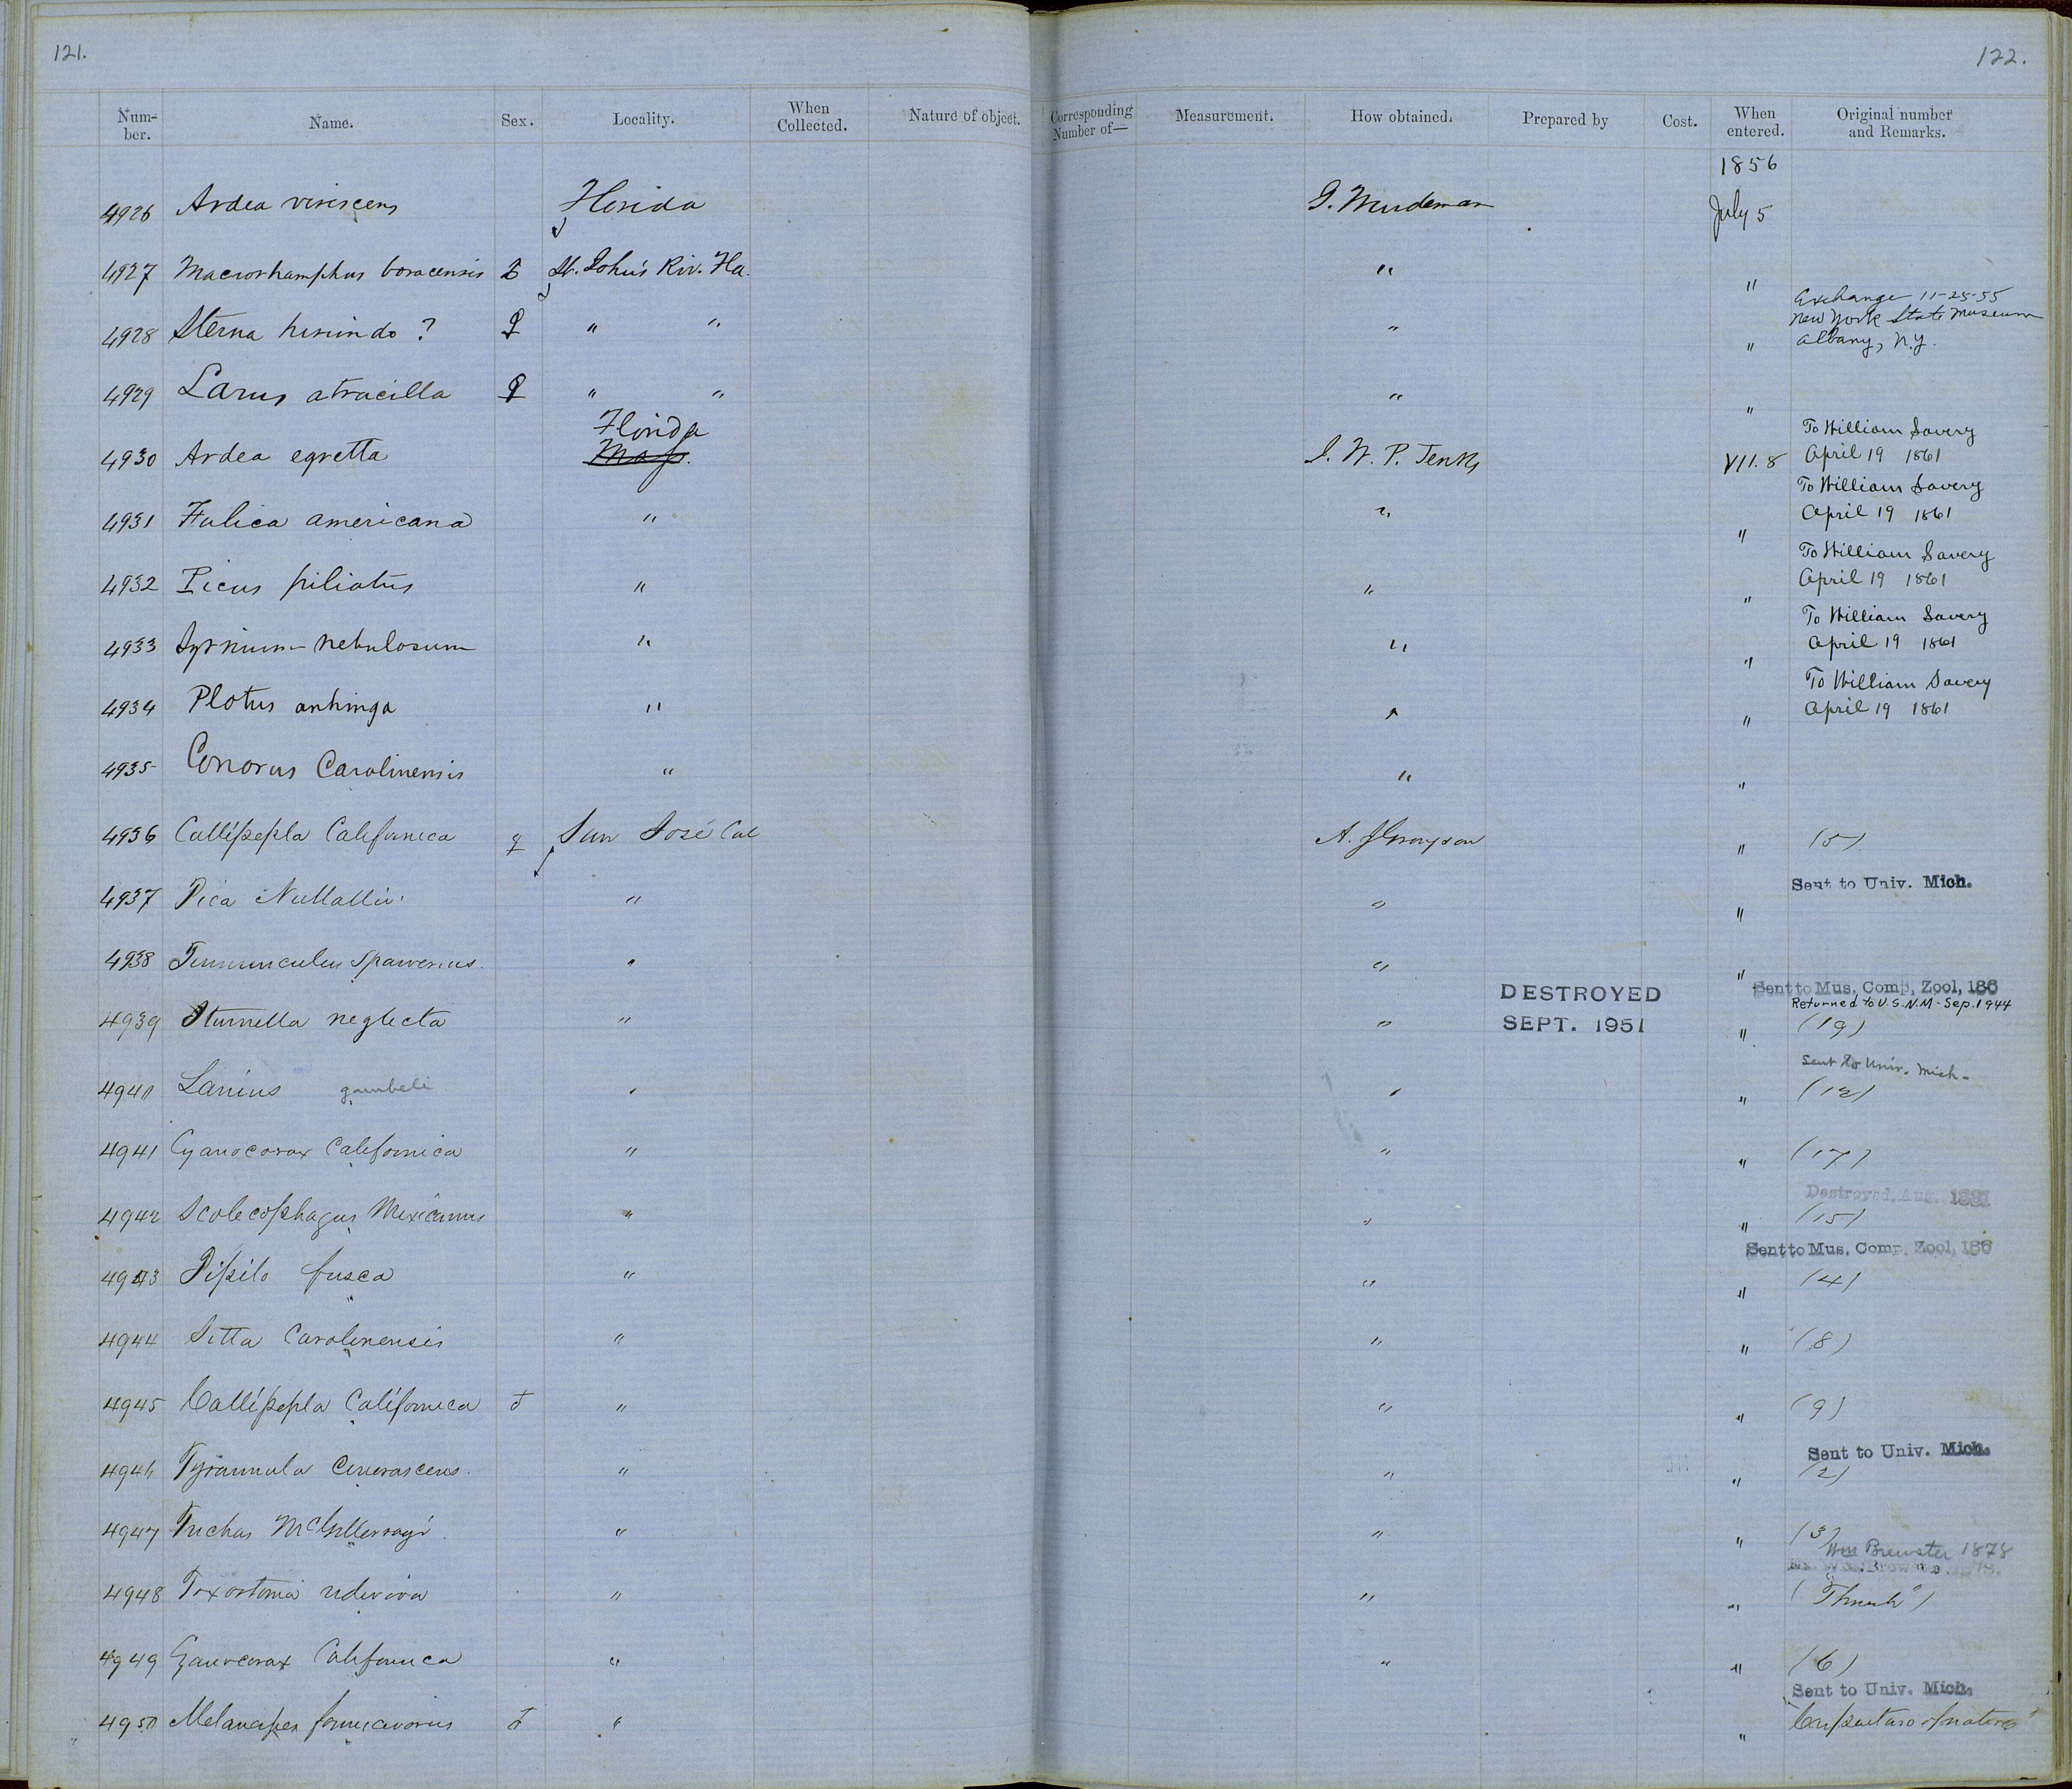 121.
122.
Num-ber. Name. Sex. Locality. When Collected. Nature of object. Corresponding Number of— Measurement. How obtained. Prepared by Cost. When entered. Original number and Remarks.
1856
4926 Ardea virescens Florida G. Wurdeman July 5
4927 Macrorhamphus boracensis ♂ St. John's Riv. Fla. " "
Exchange 11-25-55
New York State Museum
4928 Sterna hirundo ? ♀ " " " " Albany, N.Y.
4929 Larus atracilla ♀ " " " "
Florida To William Savery
4930 Ardea egretta Mass. J. W. P. Jenks VII. 8 April 19 1861
To William Savery
4931 Fulica americana " " " April 19 1861
To William Savery
4932 Picus piliatus " " " April 19 1861
To William Savery
4933 Syrnium nebulosum " " " April 19 1861
To William Savery
4934 Plotus anhinga " " " April 19 1861
4935 Conorus Carolinensis " " "
4936 Callipepla Californica ♀ San José Cal A. J Grayson " (5)
Sent to Univ. Mich.
4937 Pica Nuttallii " " "
4938 Tinnunculus Sparverius " " "
Sent to Mus. Comp. Zool, 186
DESTROYED Returned to U.S.N.M - Sep. 1944
4939 Sturnella neglecta " " SEPT. 1951 " (19)
Sent to Univ. Mich-
4940 Lanius gambeli " " " (12)
4941 Cyanocorax Californica " " " (17)
Destroyed, Aug. 1881
4942 Scolecophagus Mexicanus " " " (15)
Sent to Mus. Comp. Zool, 186
4943 Pipilo fusca " " " (4)
4944 Sitta Carolinensis " " " (8)
4945 Callipepla Californica ♂ " " " (9)
Sent to Univ. Mich.
4946 Tyrannula Cinerascens. " " " (2)
4947 Trichas McGillivrayi " " " (3)
Wm Brewster 1878
4948 Toxostoma rediviva " " " ("Thrush")
4949 Cyanocorax Californica " " " (6)
Sent to Univ. Mich.
4950 Melanerpes formicivorus ♂ " " "